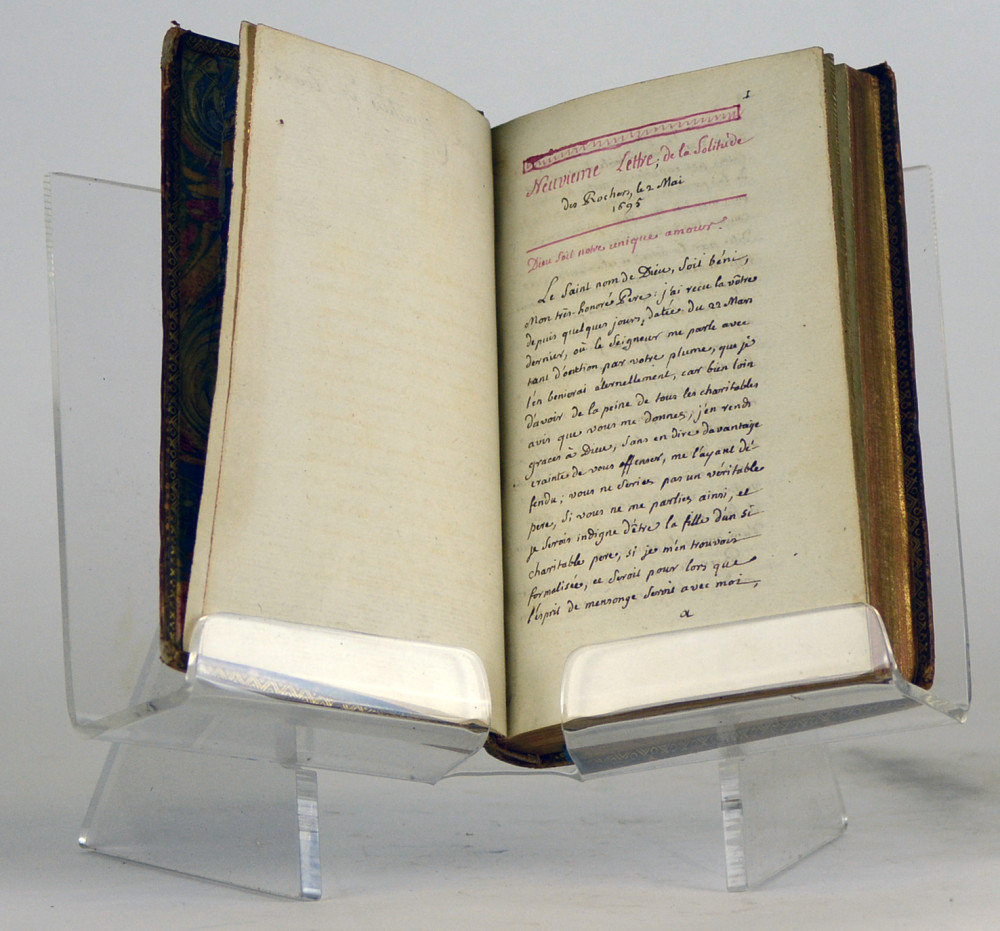 1
Neuvieme Lettre; de la Solitude
des Rochers, le 2 Mai
1695
Dieu soit notre unique amour!
Le saint nom de Dieu, soit béni,
Mon très-honoré Pere; j'ai recu la vôtre
depuis quelques jours, datée du 22 Mars
dernier, où le Seigneur me parle avec
tant d'onction par votre plume, que je
l'en benirai éternellement, car bien loin
d'avoir de la peine de tous les charitables
avis que vous me donnez, j'en rends
graces à Dieu, sans en dire davantage
crainte de vous offenser, me l'ayant dé-
fendu; vous ne seriez pas un véritable
pere, si vous ne me parliez ainsi, et
je serois indigne d'être la fille d'un si
charitable pere, si je m'en trouvois
formalisée, ce seroit pour lors que
l'esprit de mensonge seroit avec moi,
a